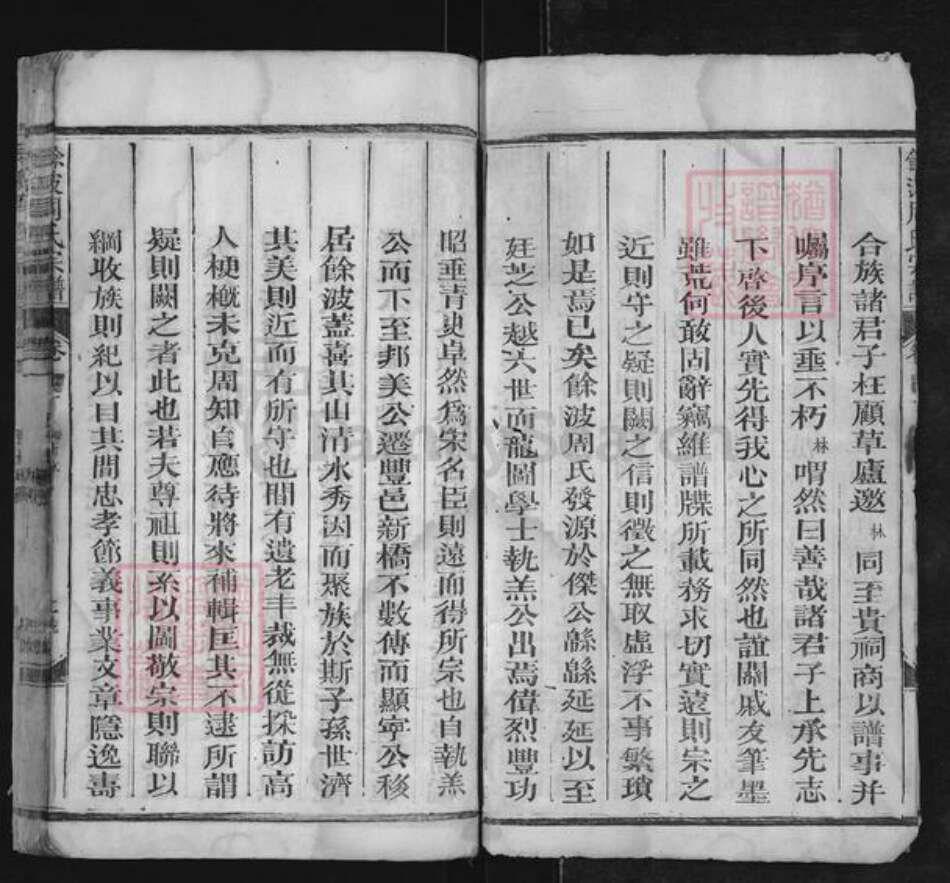 合族諸君子枉顧草廬邀林同至貴祠商以譜事并
囑序言以垂不朽林喟然曰善哉諸君子上承先志
下啓後人實先得我心之所同然也誼關戚友筆墨
雖荒何敢固辭竊維譜牒所載務求切實遠則宗之
近則守之疑則闕之信則徵之無取虛浮不事繁瑣
如是焉已矣餘波周氏發源於傑公緜緜延延以至
廷芝公越六世而龍圖學士執羔公出焉偉烈豐功
昭垂青史卓然爲宋名臣則遠而得所宗也自執羔
公而下至邦美公遷豐邑新橋不數傳而顯寧公移
居餘波蓋喜其山清水秀因而聚族於斯子孫世濟
其美則近而有所守也間有遺老丰裁無從探訪高
人梗概未克周知自應待將來補輯匡其不逮所謂
疑則闕之者此也若夫尊祖則系以圖敬宗則聯以
綱收族則紀以目其間忠孝節義事業文章隱逸壽
餘波周氏宗譜
卷